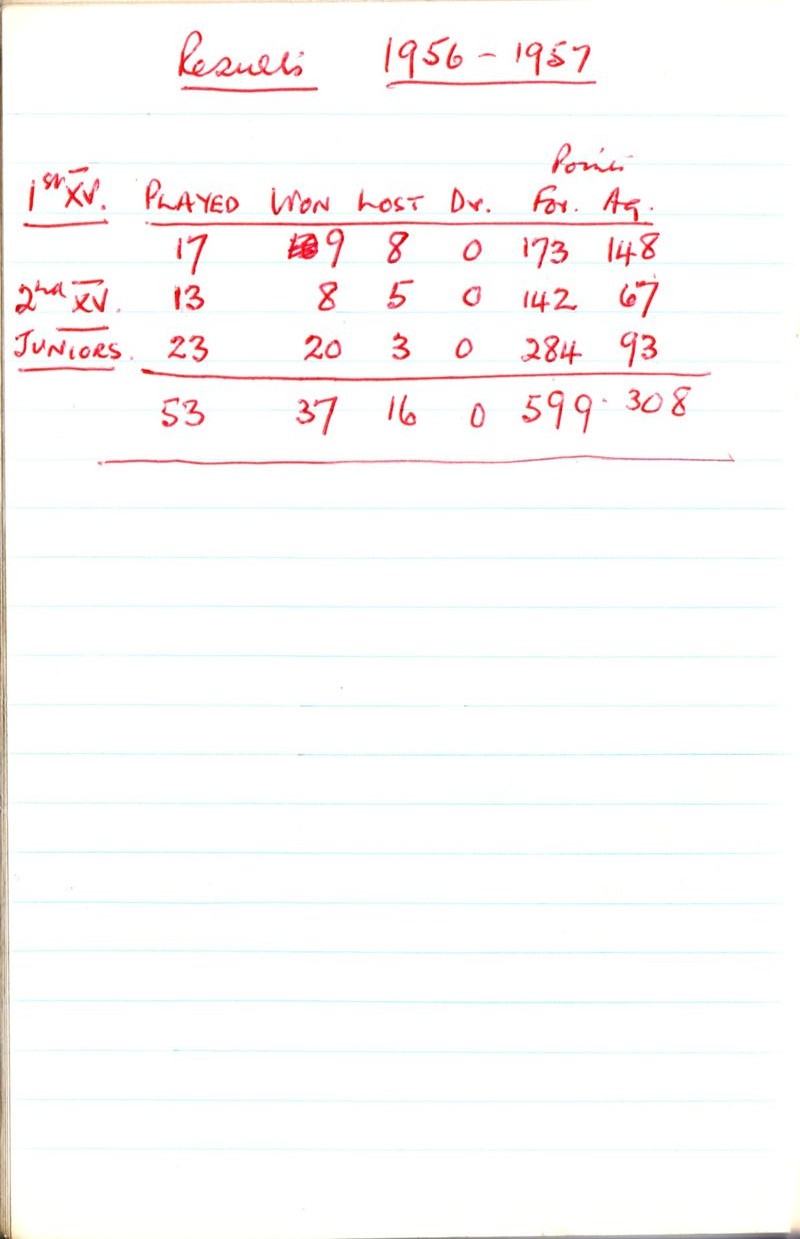 Results 1956 - 1957
Points
1st XV. PLAYED WON LOST Dr. For. Ag.
17 9 8 0 173 148
2nd XV. 13 8 5 0 142 67
JUNIORS. 23 20 3 0 284 93
53 37 16 0 599 308